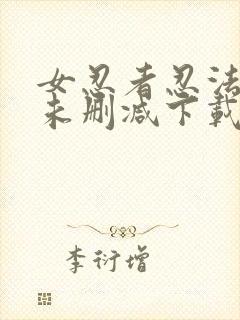 女忍者忍法
未删减下载
李衍增